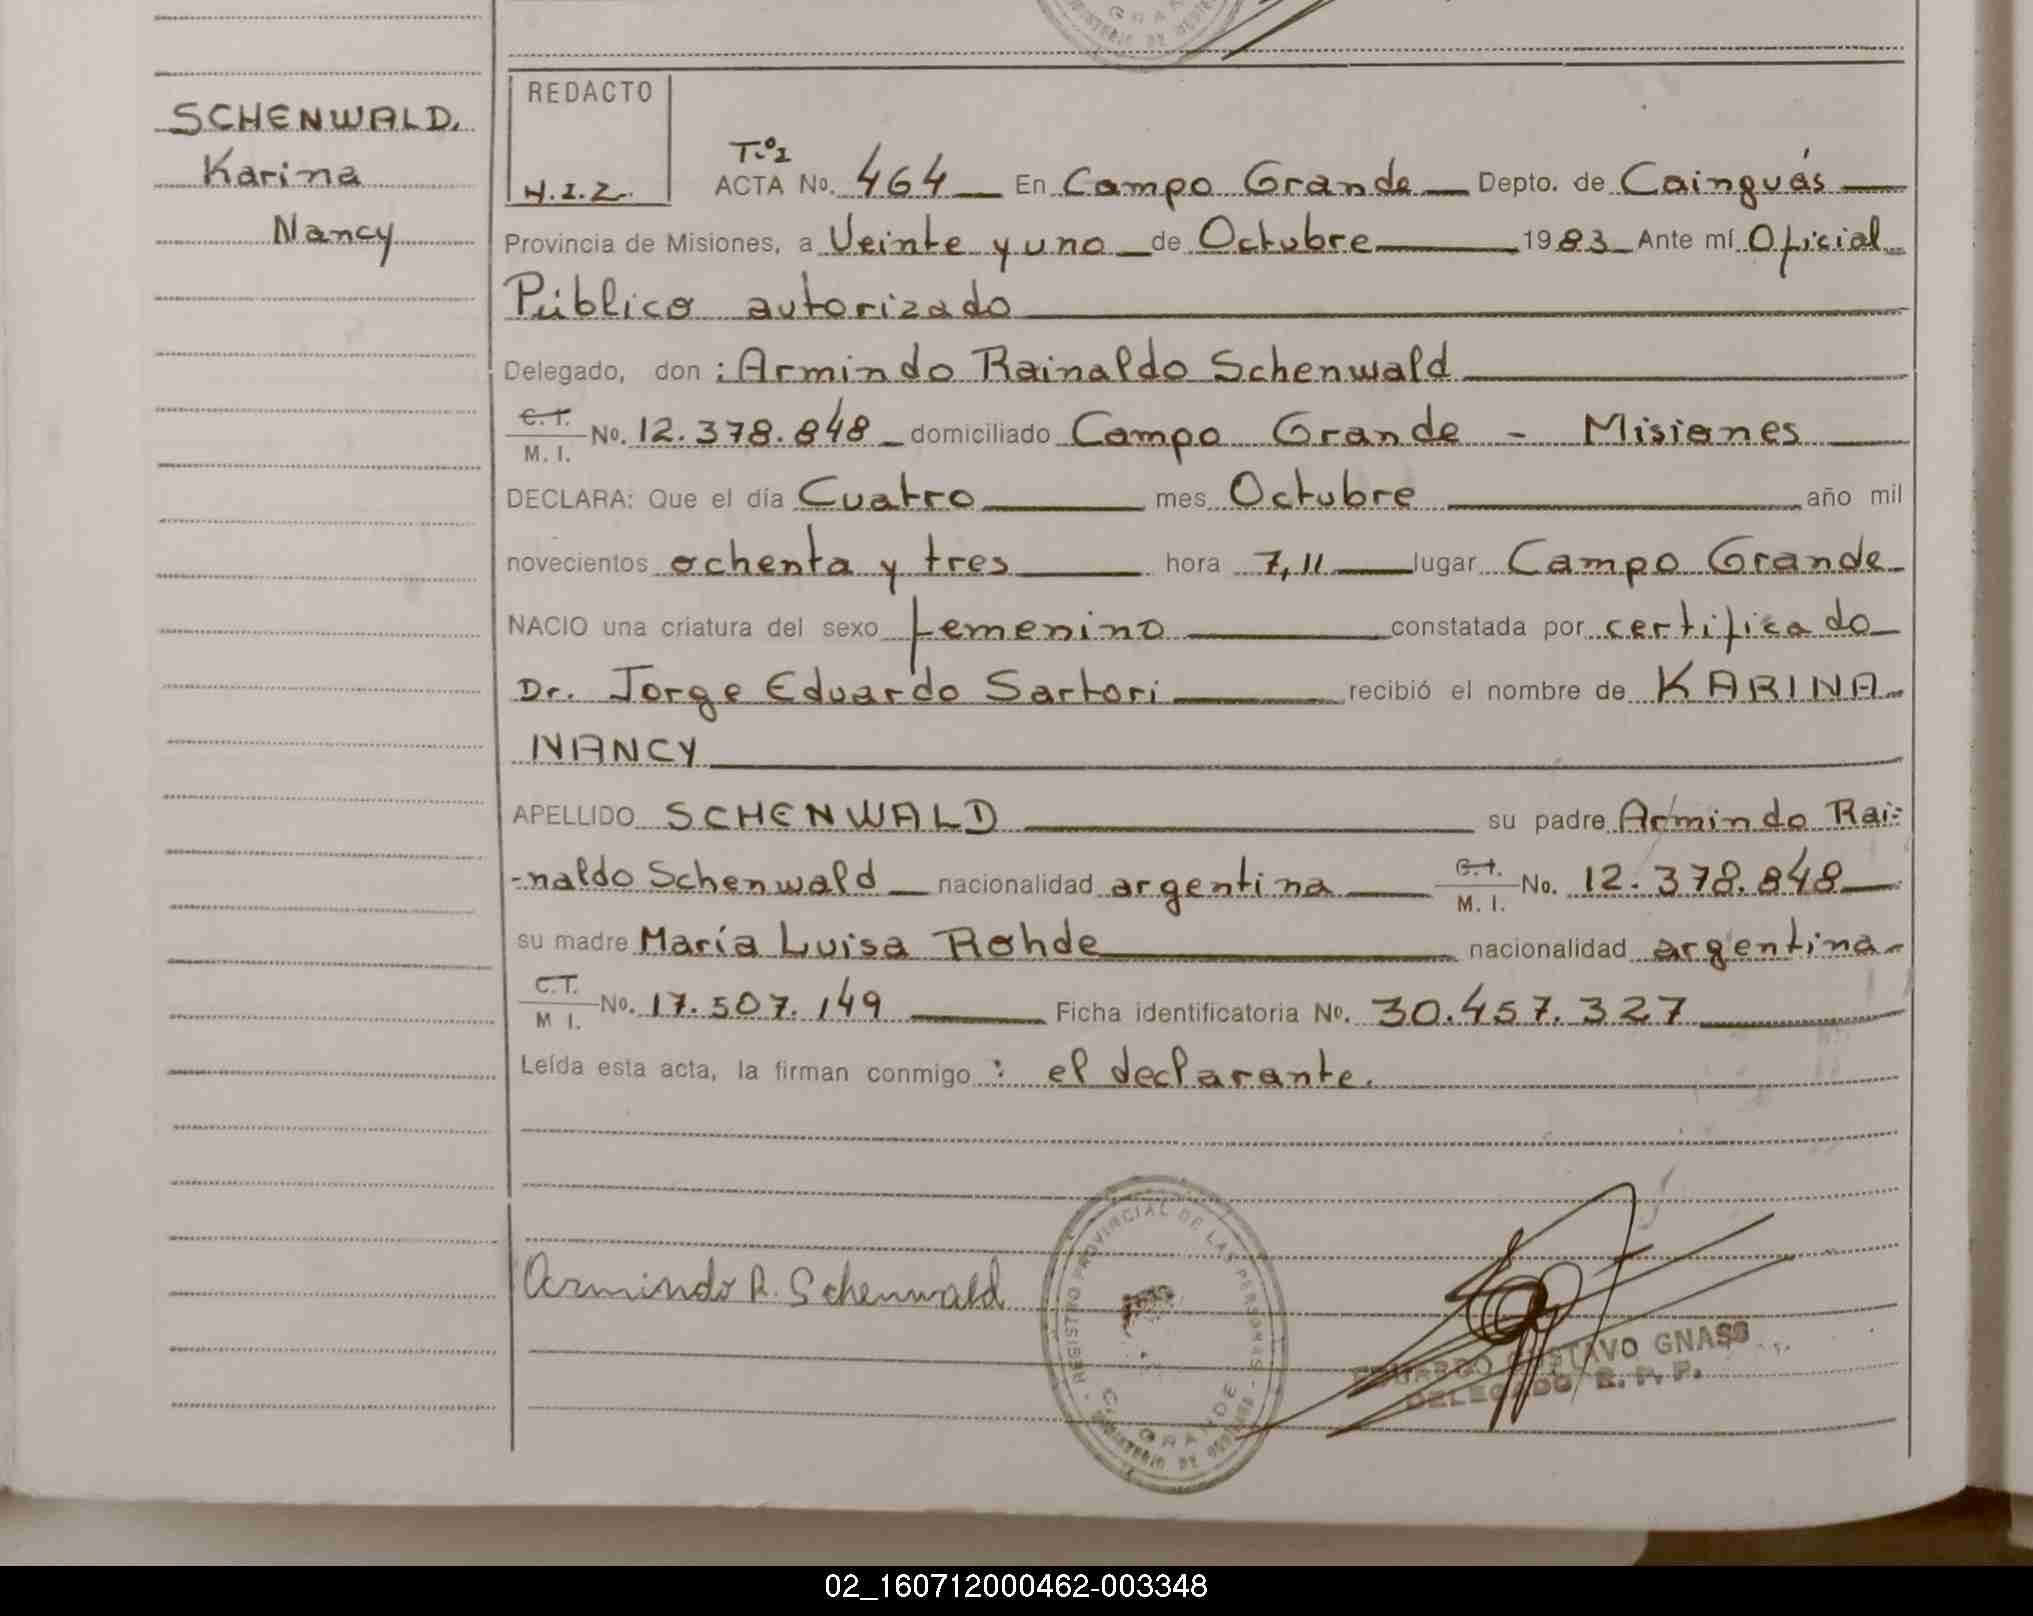 SCHENWALD,
Karina
Nancy
REDACTO
H.I.Z.
T.º2
ACTA No. 464 En Campo Grande Depto. de Cainguás
Provincia de Misiones, a Veinte y uno de Octubre 1983 Ante mí Oficial
Público autorizado
Delegado, don : Armindo Rainaldo Schenwald
C.T.
M. I. No. 12.378.848 domiciliado Campo Grande - Misiones
DECLARA: Que el día Cuatro mes Octubre año mil
novecientos ochenta y tres hora 7,11 lugar Campo Grande
NACIO una criatura del sexo femenino constatada por certificado
Dr. Jorge Eduardo Sartori recibió el nombre de KARINA
NANCY
APELLIDO SCHENWALD su padre Armindo Rai-
-naldo Schenwald nacionalidad argentina C.T. M. I. No. 12.378.848
su madre María Luisa Rohde nacionalidad argentina
C.T.
M I. No. 17.507.149 Ficha identificatoria No. 30.457.327
Leída esta acta, la firman conmigo : el declarante.
Armindo R. Schenwald
REGISTRO PROVINCIAL DE LAS PERSONAS
C. GRANDE
MINISTERIO DE GOBIERNO
EDUARDO GUSTAVO GNASS
DELEGADO R. P. P.
02_160712000462-003348